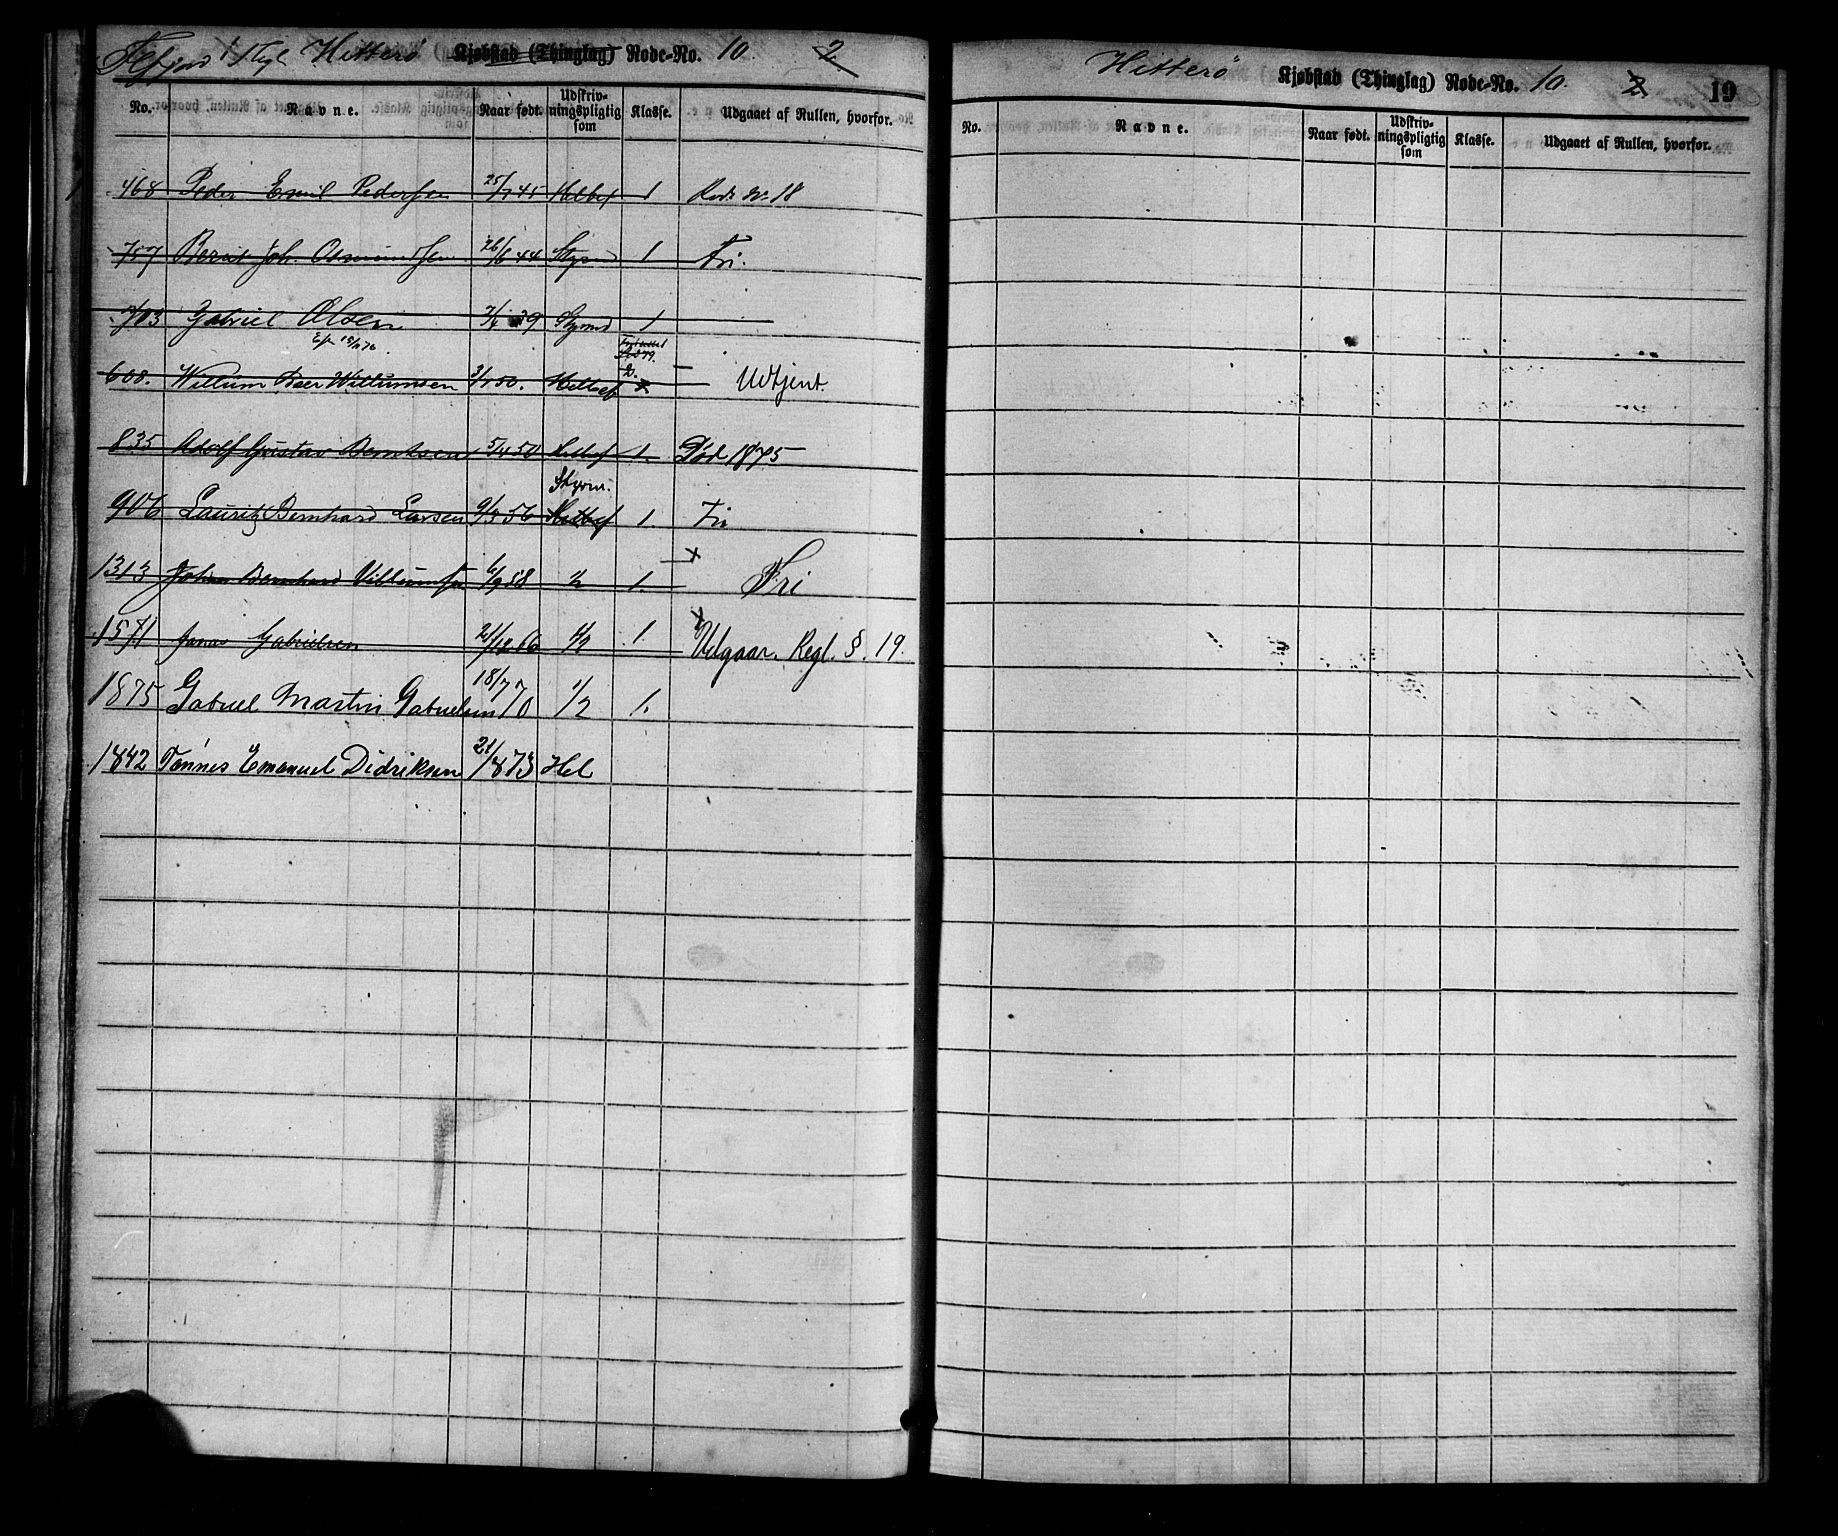 Hitterø Kjøbstad (Thinglag) Rode-No. 10. 2.
No. Navne. Naar født. Udskrivningspligtig som Klasse. Udgaaet af Rullen, hvorfor.
468 Peder Emil Pedersen 25/7 45 Helbef 1 Rode No 18
757 Bernt Joh. Osmundsen 26/6 44 Styrm 1 Fri.
703 Gabriel Olsen 39 Styrmd 1
608. Willum Beer Willumsen 50. Helbef Udtjent.
835 Adolf Gustav Berntsen 5/4 50 Helbef 1. Død 1875
Styrm.
906 Lauritz Bernhard Larsen 9/3 56 Helbef 1. Fri
1313 Johan Bernhard Villumsen 6/9 58 1/2 1. Fri
1571 Jonas Gabrielsen 21/12 66 1/2 1. Udgaar. Regl. §. 19.
1875 Gabriel Martin Gabrielsen 18/7 70 1/2 1.
1842 Tønnes Emanuel Didriksen 21/1 873 Hel
Hitterø Kjøbstad (Thinglag) Rode-No. 10. 2. 19
No. Navne. Naar født. Udskrivningspligtig som Klasse. Udgaaet af Rullen, hvorfor.